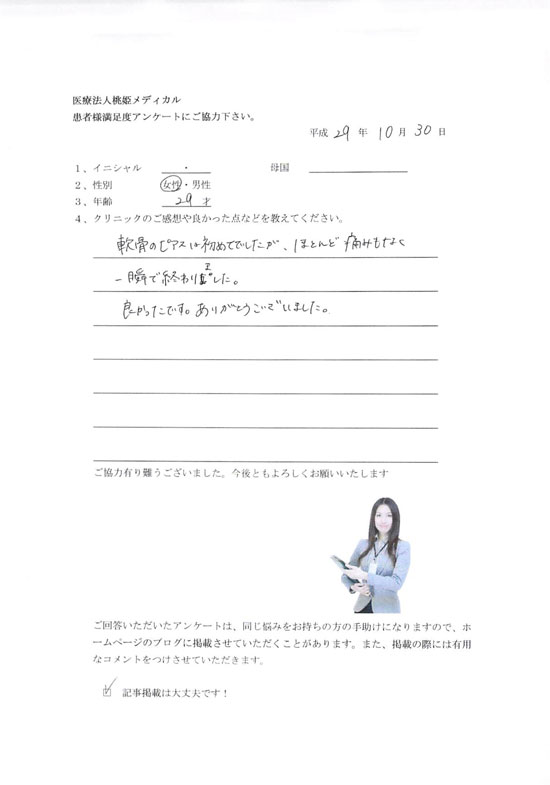 医療法人桃姫メディカル
患者様満足度アンケートにご協力下さい。
平成 29 年 10 月 30 日
1、イニシャル ・ 母国
2、性別 女性・男性
3、年齢 29 才
4、クリニックのご感想や良かった点などを教えてください。
軟骨のピアスは初めてでしたが、ほとんど痛みもなく
一瞬で終わりました。
良かったです。ありがとうございました。
ご協力有り難うございました。今後ともよろしくお願いいたします
ご回答いただいたアンケートは、同じ悩みをお持ちの方の手助けになりますので、ホ
ームページのブログに掲載させていただくことがあります。また、掲載の際には有用
なコメントをつけさせていただきます。
☑ 記事掲載は大丈夫です！